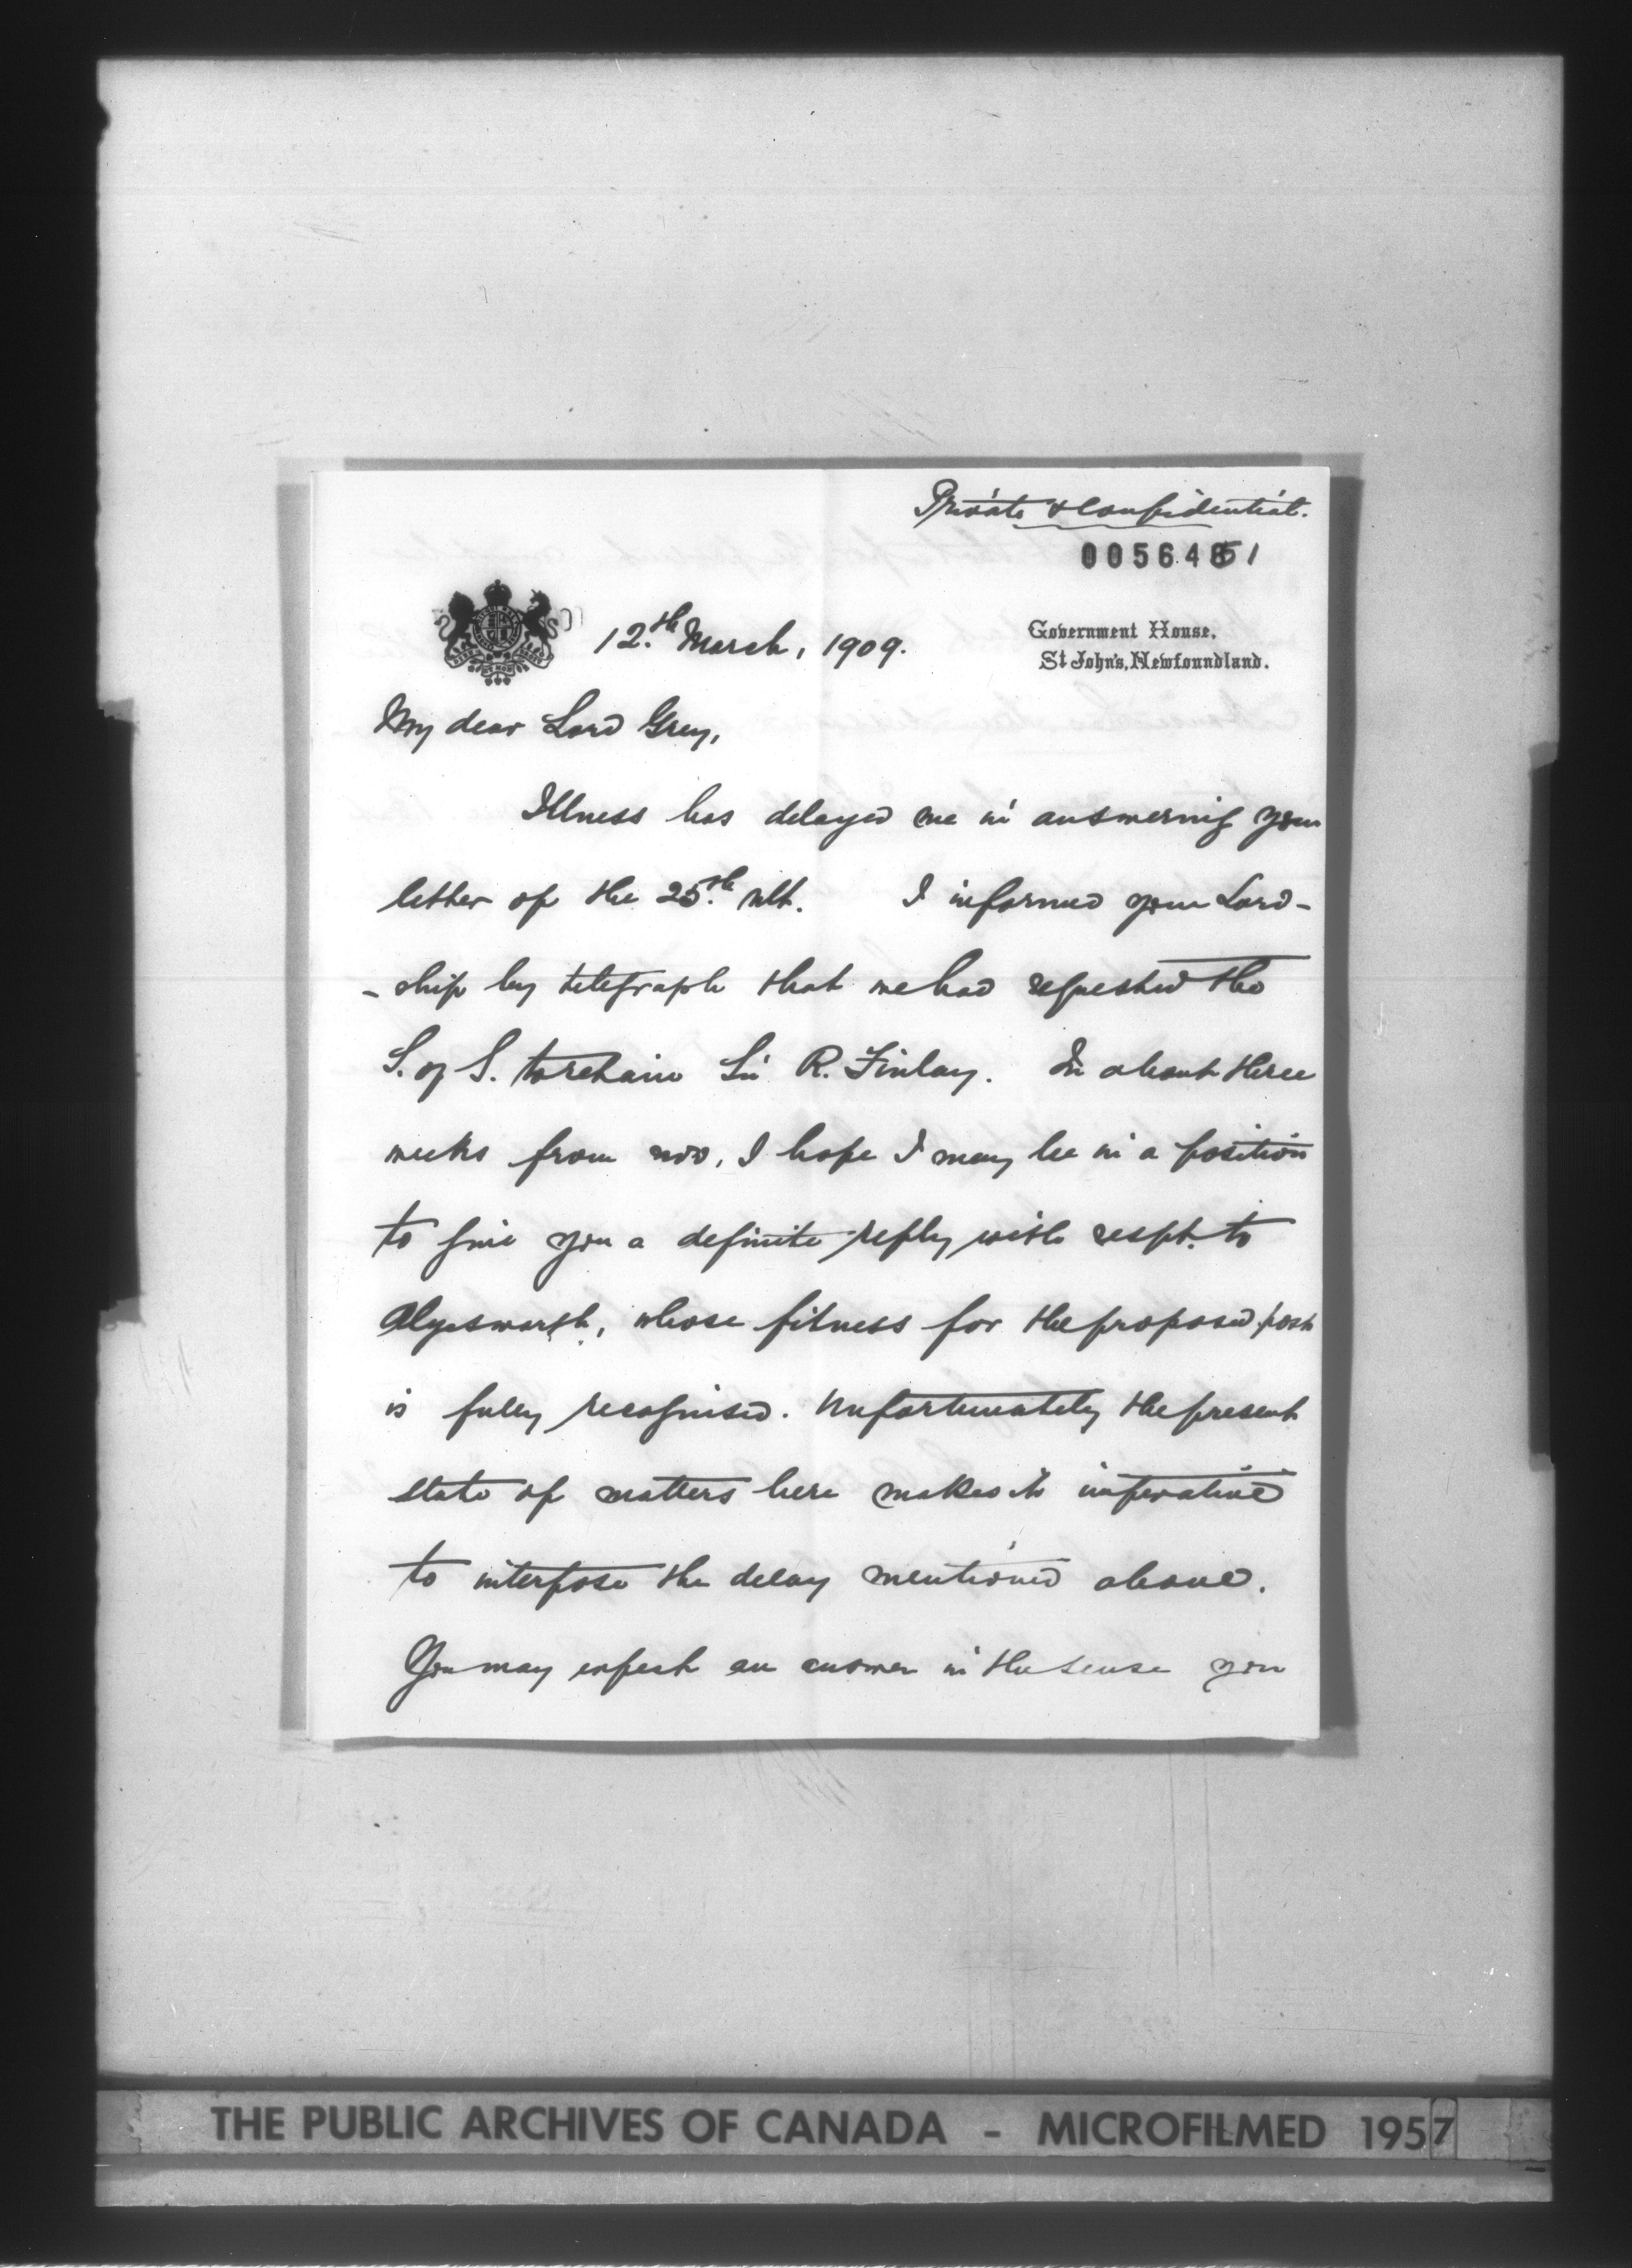 Private & Confidential.
00564851
Government House,
St John's, Newfoundland.
12.th March, 1909.
My dear Lord Grey,
Illness has delayed me in answering your
letter of the 25.th ult. I informed your Lord-
- ship by telegraph that we had requested the
S. of S. to retain Sir R. Finlay. In about three
weeks from now, I hope I may be in a position
to give you a definite reply with respt. to
Alyesworth, whose fitness for the proposed post
is fully recognised. Unfortunately the present
state of matters here makes it imperative
to interpose the delay mentioned above.
You may expect an answer in the sense you
THE PUBLIC ARCHIVES OF CANADA - MICROFILMED 1957